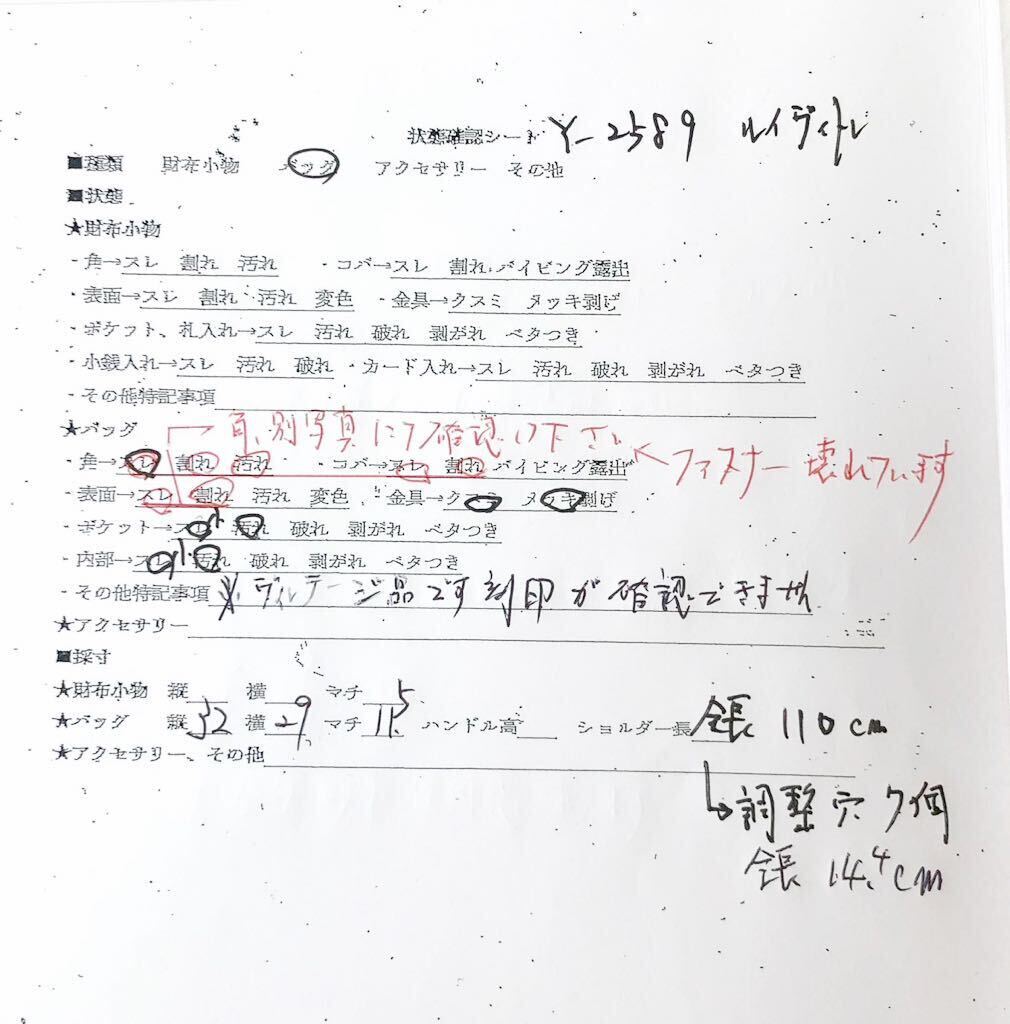 状態確認シート Y-2589 ルイヴィトン
■種類 財布小物 バッグ アクセサリー その他
■状態
★財布小物
・角→スレ 割れ 汚れ ・コバ→スレ 割れ パイピング露出
・表面→スレ 割れ 汚れ 変色 ・金具→クスミ メッキ剥げ
・ポケット、札入れ→スレ 汚れ 破れ 剥がれ ベタつき
・小銭入れ→スレ 汚れ 破れ ・カード入れ→スレ 汚れ 破れ 剥がれ ベタつき
・その他特記事項
別写真にてご確認下さい
★バッグ
・角→スレ 割れ 汚れ ・コバ→スレ 割れ パイピング露出 ←ファスナー壊れています
・表面→スレ 割れ 汚れ 変色 ・金具→クスミ メッキ剥げ
・ポケット→スレ小 汚れ 破れ 剥がれ ベタつき
・内部→スレ小 汚れ 破れ 剥がれ ベタつき
・その他特記事項 ※ヴィンテージ品です 刻印が確認できません
★アクセサリー
■採寸
★財布小物 縦 横 マチ
★バッグ 縦32 横29 マチ11.5 ハンドル高 ショルダー長 全長110cm
★アクセサリー、その他
↳調整穴7個
全長14.4cm